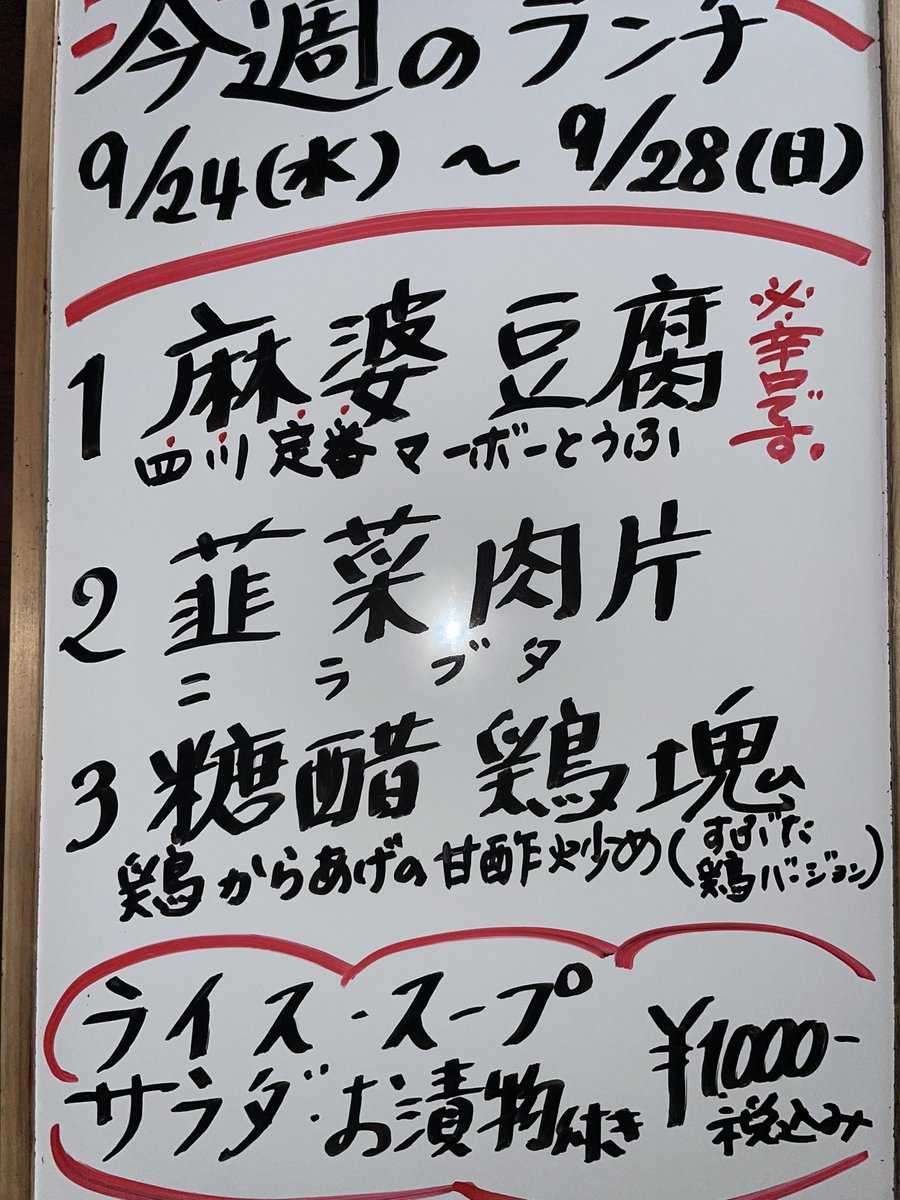 今週のランチ
9/24(水)～9/28(日)
1 麻婆豆腐
※辛口です。
四川定番マーボーとうふ
2 韮菜肉片
ニラブタ
3 糖醋鶏塊
鶏からあげの甘酢炒め(すぶた鶏バージョン)
ライス・スープ
サラダ・お漬物付き
¥1000-
税込み